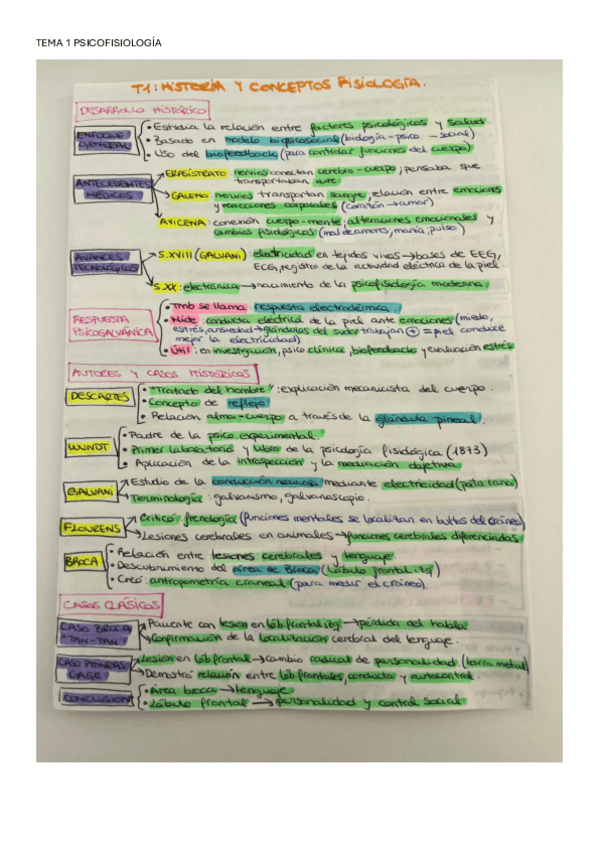 TEMA 1 PSICOFISIOLOGÍA
T1: HISTORIA Y CONCEPTOS FISIOLOGÍA.
DESARROLLO HISTÓRICO
ENFOQUE GENERAL
• Estudia la relación entre factores psicológicos y salud.
• Basado en modelo biopsicosocial (biología-psico.-social)
• Uso del biofeedback (para controlar funciones del cuerpo)
ANTECEDENTES MÉDICOS
ERASÍSTRATO: nervios conectan cerebro-cuerpo; pensaba que
transportaban aire
GALENO: nervios transportan sangre; relación entre emociones
y reacciones corporales (corazón → amor)
AVICENA: conexión cuerpo-mente; alteraciones emocionales y
cambios fisiológicos (mal de amores, manía, pulso)
AVANCES TECNOLÓGICOS
S.XVIII (GALVANI): electricidad en tejidos vivos → bases de EEG,
ECG, registro de la actividad eléctrica de la piel.
S.XX: electrónica → nacimiento de la psicofisiología moderna.
RESPUESTA PSICOGALVÁNICA
• Tmb se llama: respuesta electrodérmica.
• Mide: conducta eléctrica de la piel ante emociones (miedo,
estrés, ansiedad → glándulas del sudor trabajan + = piel conduce
mejor la electricidad)
• Útil: en investigación, psico clínica, biofeedback y evaluación estrés
AUTORES Y CASOS HISTÓRICOS
DESCARTES
• "Tratado del hombre": explicación mecanicista del cuerpo.
• Concepto de reflejo
• Relación alma-cuerpo a través de la glándula pineal.
WUNDT
• Padre de la psico experimental.
• Primer laboratorio y libro de la psicología fisiológica (1873)
• Aplicación de la introspección y la medición objetiva.
GALVANI
Estudio de la conducción nerviosa mediante electricidad (pata rana)
Terminología: galvanismo, galvanoscopio.
FLOURENS
Criticó frenología (funciones mentales se localizan en bultos del cráneo)
Lesiones cerebrales en animales → funciones cerebrales diferenciadas
BROCA
• Relación entre lesiones cerebrales y lenguaje.
• Descubrimiento del área de Broca (lóbulo frontal izq)
• Creó: antropometría craneal (para medir el cráneo).
CASOS CLÁSICOS
CASO BROCA "TAN-TAN"
Paciente con lesion en lób frontal izq → pérdida del habla
Confirmación de la localización cerebral del lenguaje.
CASO PHINEAS GAGE
Lesión en lób frontal → cambio radical de personalidad. (barra metal)
Demostró relación entre lób frontales, conducta y autocontrol.
CONCLUSION
• Área broca → lenguaje
• Lóbulo frontal → personalidad y control social